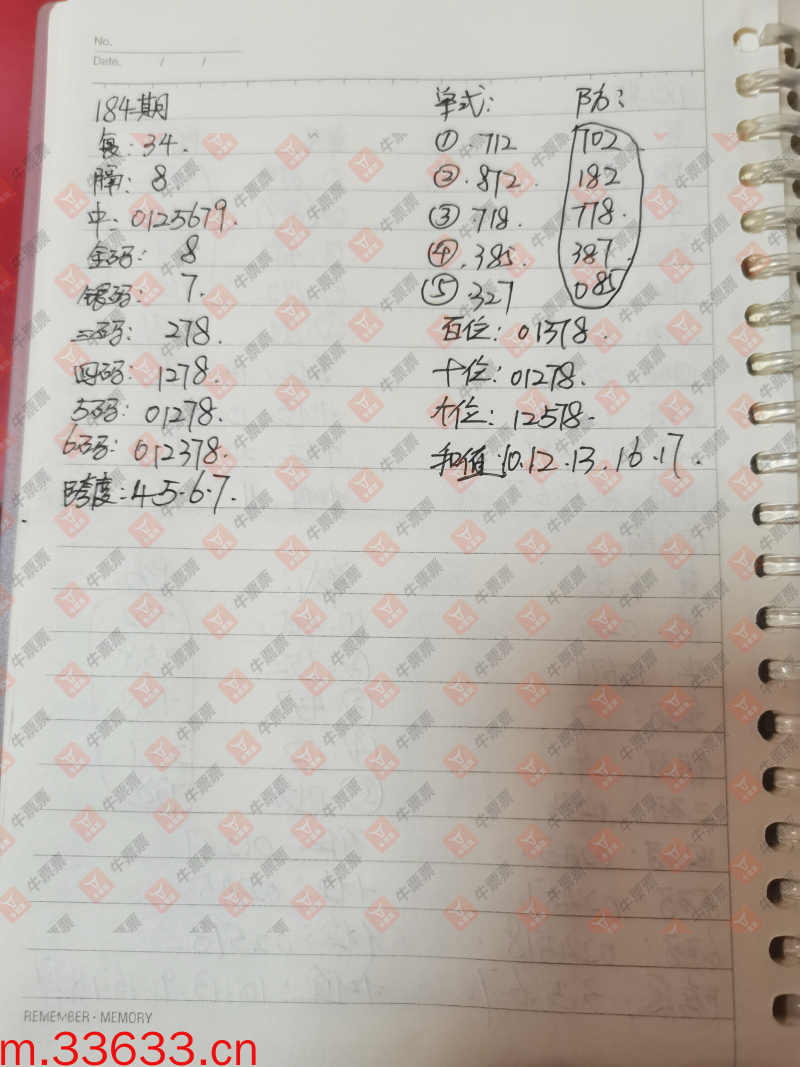 No.
Date. / /
184期
: 34.
: 8.
中、0125679.
金码: 8
银码: 7.
三码: 278.
四码: 1278.
5码: 01278.
6码: 012378.
跨度: 4.5.6.7.
单式: 防:
① .712 702
② .872 . 182
③ .718. 778.
④ .385. 387.
⑤ .327 085
百位: 01378.
十位: 01278.
个位: 12578.
和值: 10.12.13.16.17.
牛票票
REMEMBER · MEMORY
m.33633.cn